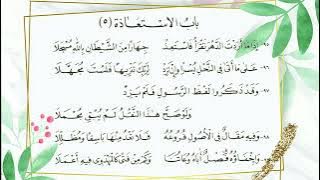 بَابُ الاسْتِعَاذَةِ (٥)
٩٥- إِذَا مَا أَرَدْتَ الدَّهْرَ تَقْرَأُ فَاسْتَعِذْ جِهَارًا مِنَ الشَّيْطَانِ بِاللَّهِ مُسْجَلَا
٩٦- عَلَى مَا أَتَى فِي النَّحْلِ يُسْرًا وَإِنْ تَزِدْ لِرَبِّكَ تَنْزِيهًا فَلَسْتَ مُجَهَّلَا
٩٧- وَقَدْ ذَكَرُوا لَفْظَ الرَّسُولِ فَلَمْ يَزِدْ
وَلَوْ صَحَّ هَذَا النَّقْلُ لَمْ يُبْقِ مُجْمَلَا
٩٨- وَفِيهِ مَقَالٌ فِي الْأُصُولِ فُرُوعُهُ فَلَا تَعْدُ مِنْهَا بَاسِقًا وَمُظَلِّلَا
٩٩- وَإِخْفَاؤُهُ فَصْلٌ أَبَاهُ وُعَاتُنَا وَكَمْ مِنْ فَتًى كَالْمَهْدَوِي فِيهِ أَعْمَلَا